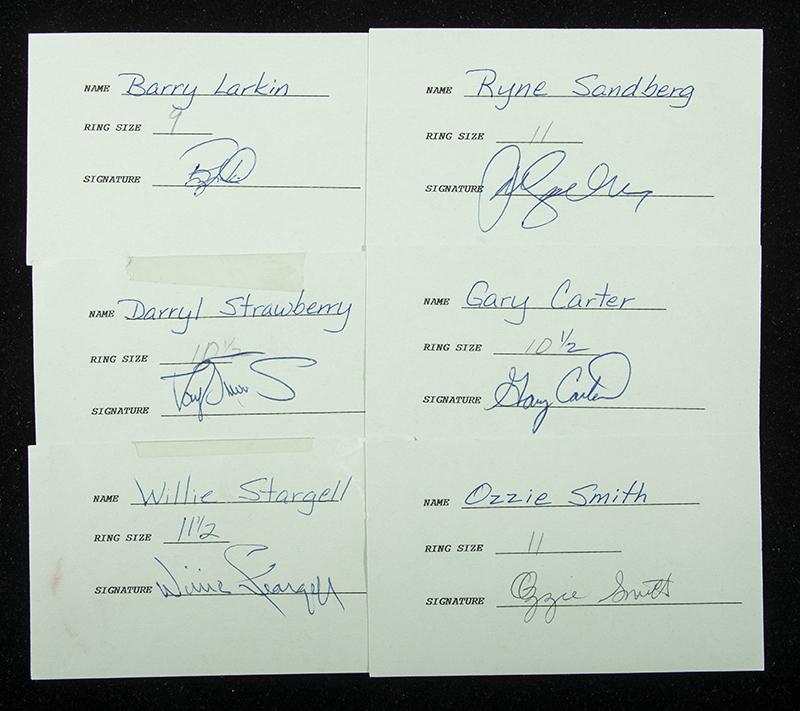 NAME Barry Larkin
RING SIZE 9
SIGNATURE
NAME Ryne Sandberg
RING SIZE 11
SIGNATURE
NAME Darryl Strawberry
RING SIZE 10 1/2
SIGNATURE
NAME Gary Carter
RING SIZE 10 1/2
SIGNATURE Gary Carter
NAME Willie Stargell
RING SIZE 11 1/2
SIGNATURE Willie Stargell
NAME Ozzie Smith
RING SIZE 11
SIGNATURE Ozzie Smith